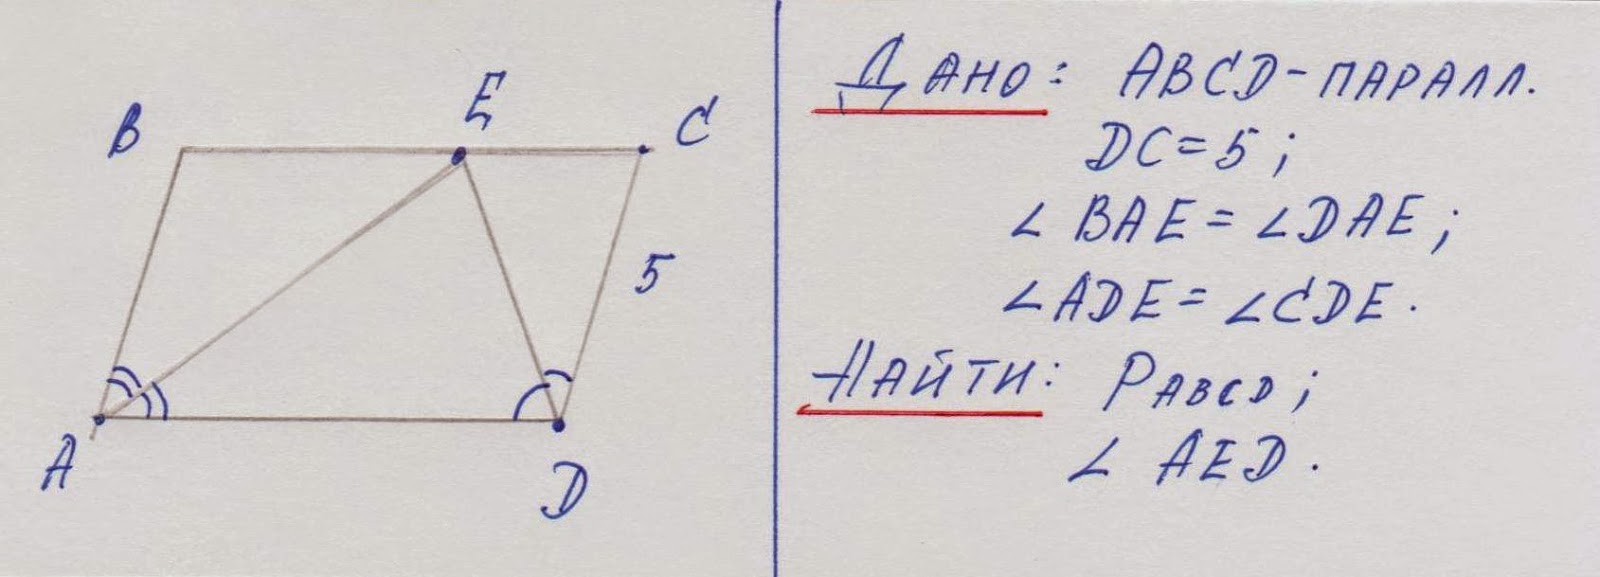 B
E
C
5
A
D
Дано: ABCD-паралл.
DC=5;
∠BAE=∠DAE;
∠ADE=∠CDE.
Найти: PABCD;
∠AED.